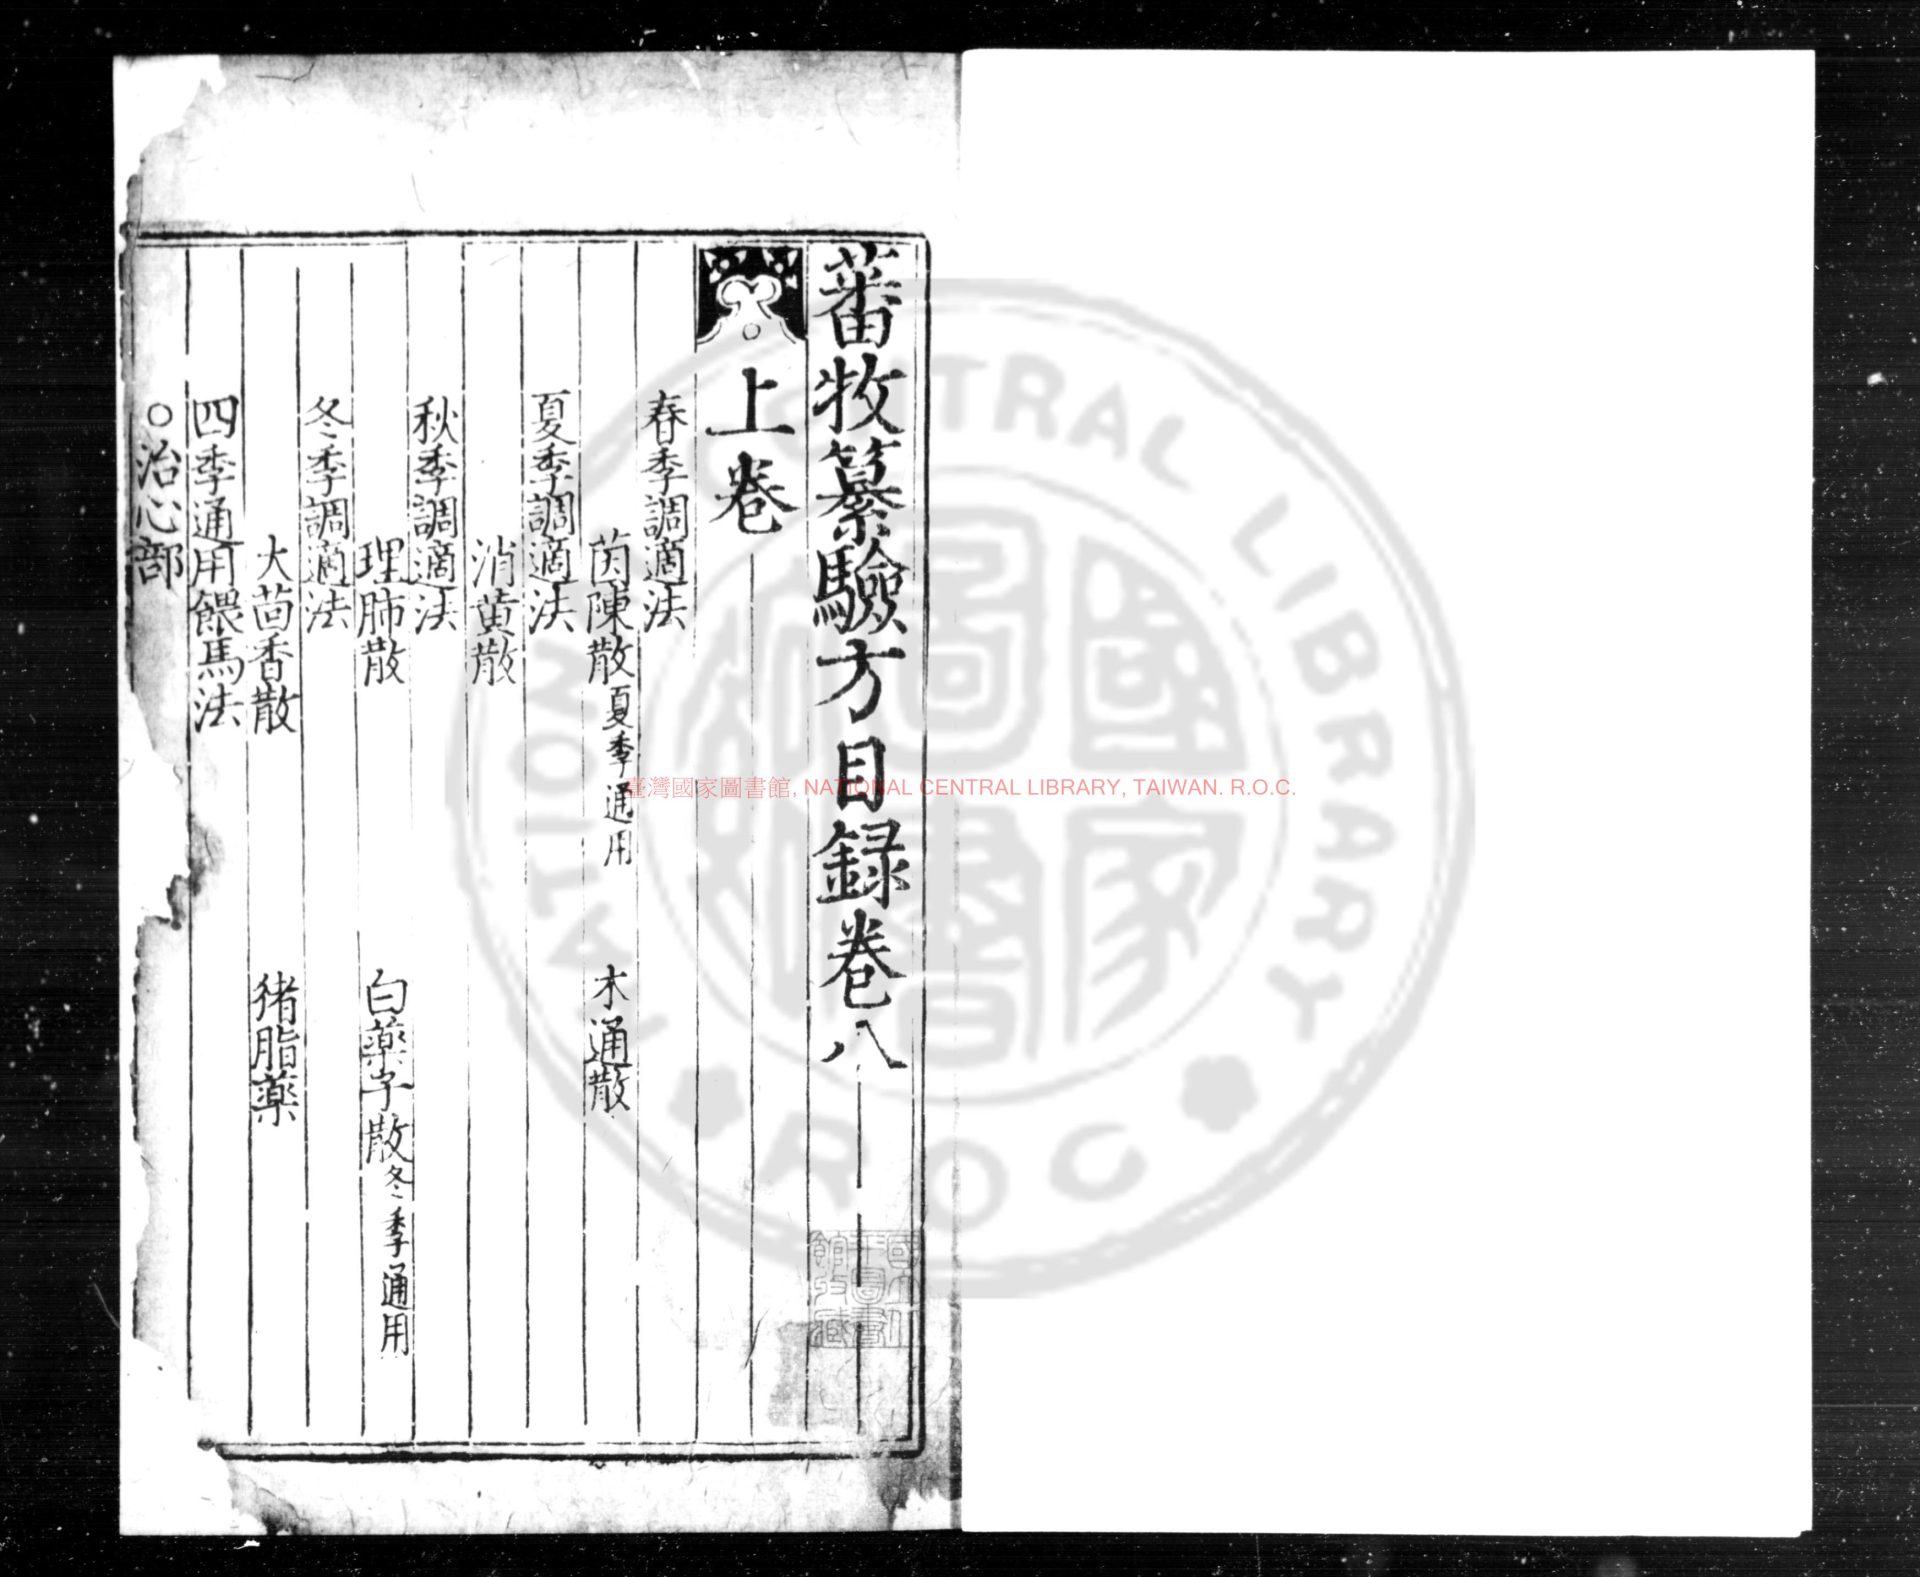 蕃牧纂驗方目録卷八
上卷
春季調適法
茵陳散夏季通用 木通散
夏季調適法
消黄散
秋季調適法
理肺散 白藥子散冬季通用
冬季調適法
大茴香散 猪脂藥
四季通用餵馬法
○治心部
臺灣國家圖書館, NATIONAL CENTRAL LIBRARY, TAIWAN. R.O.C.
NATIONAL CENTRAL LIBRARY
R.O.C
國家圖書